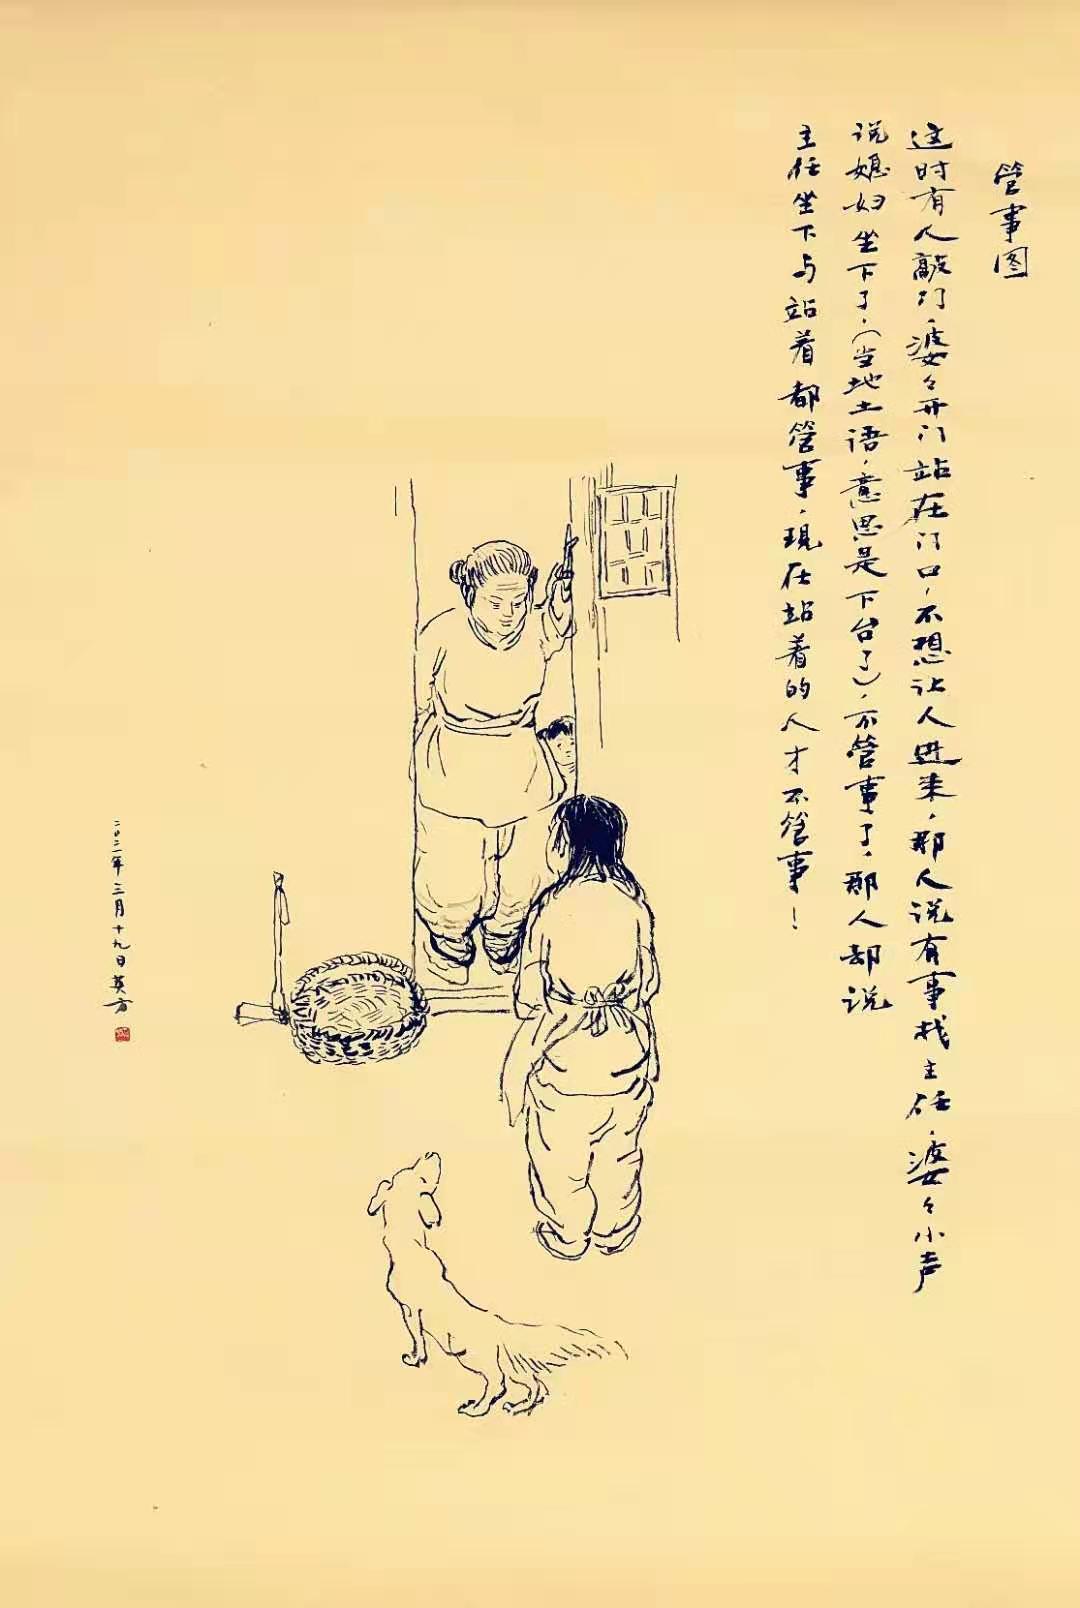 管事图
这时有人敲门，婆々开门站在门口，不想让人进来，那人说有事找主任，婆々小声
说媳妇坐下了，（当地土语，意思是下台了），不管事了，那人却说
主任坐下与站着都管事，现在站着的人才不管事！
二〇二一年三月十九日英方